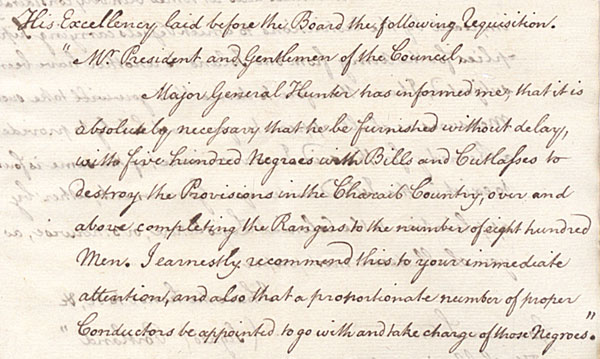 His Excellency laid before the Board the following Requisition.
"Mr. President and Gentlemen of the Council,
Major General Hunter has informed me, that it is
absolutely necessary that he be furnished without delay,
with five hundred Negroes with Bills and Cutlasses to
destroy the Provisions in the Charaib Country, over and
above completing the Rangers to the number of eight hundred
Men. I earnestly recommend this to your immediate
attention, and also that a proportionate number of proper
Conductors be appointed to go with and take charge of those Negroes."